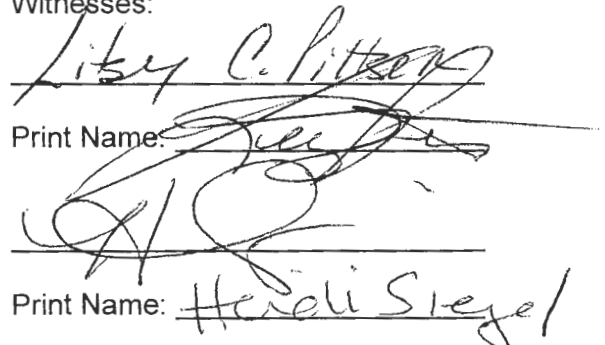 Witnesses:
Litsy C. Pittser
Print Name:
Print Name: Heidi Siegel